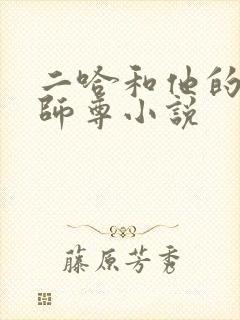 二哈和他的
師尊小說
藤原芳秀